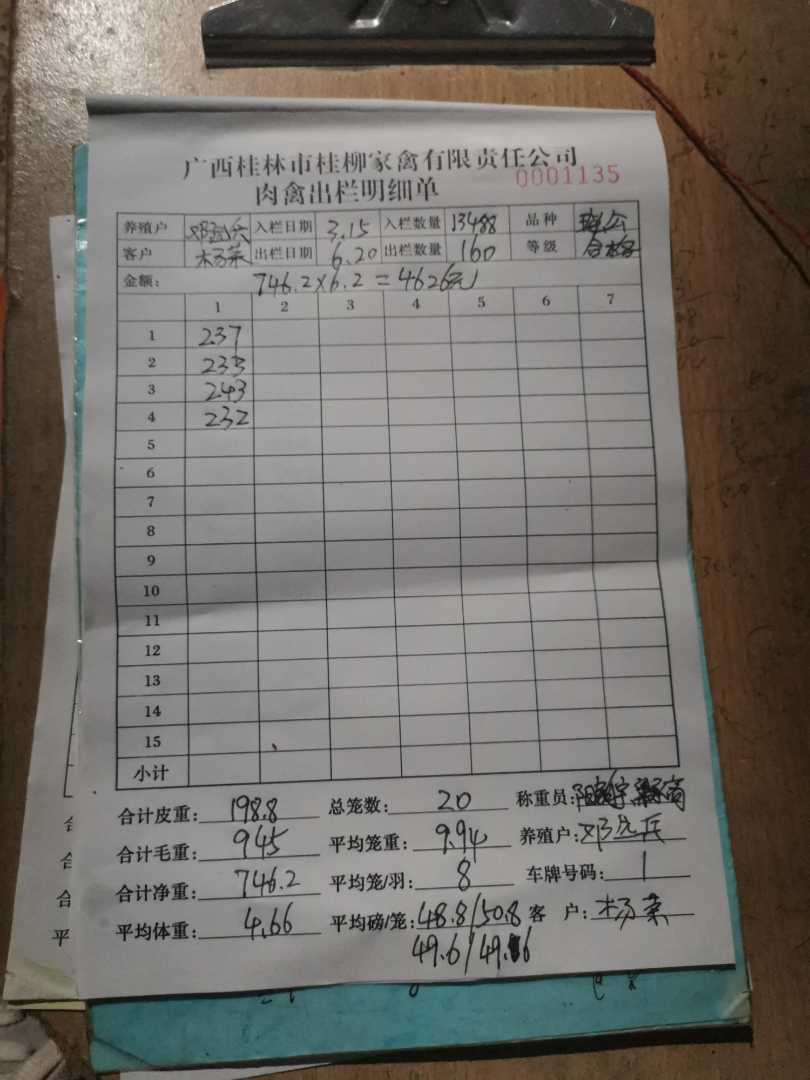 广西桂林市桂柳家禽有限责任公司
肉禽出栏明细单 0001135
养殖户 入栏日期 3.15 入栏数量 13488 品种
客户 杨荣 出栏日期 6.20 出栏数量 160 等级 合格
金额: 746.2×6.2=4626元
1 2 3 4 5 6 7
1 237
2 233
3 243
4 232
5
6
7
8
9
10
11
12
13
14
15
小计
合计皮重: 198.8 总笼数: 20 称重员:
合计毛重: 945 平均笼重: 9.94 养殖户: 邓
合计净重: 746.2 平均笼/羽: 8 车牌号码: 1
平均体重: 4.66 平均磅/笼: 48.8/50.8 客 户: 杨荣
49.6/49.6